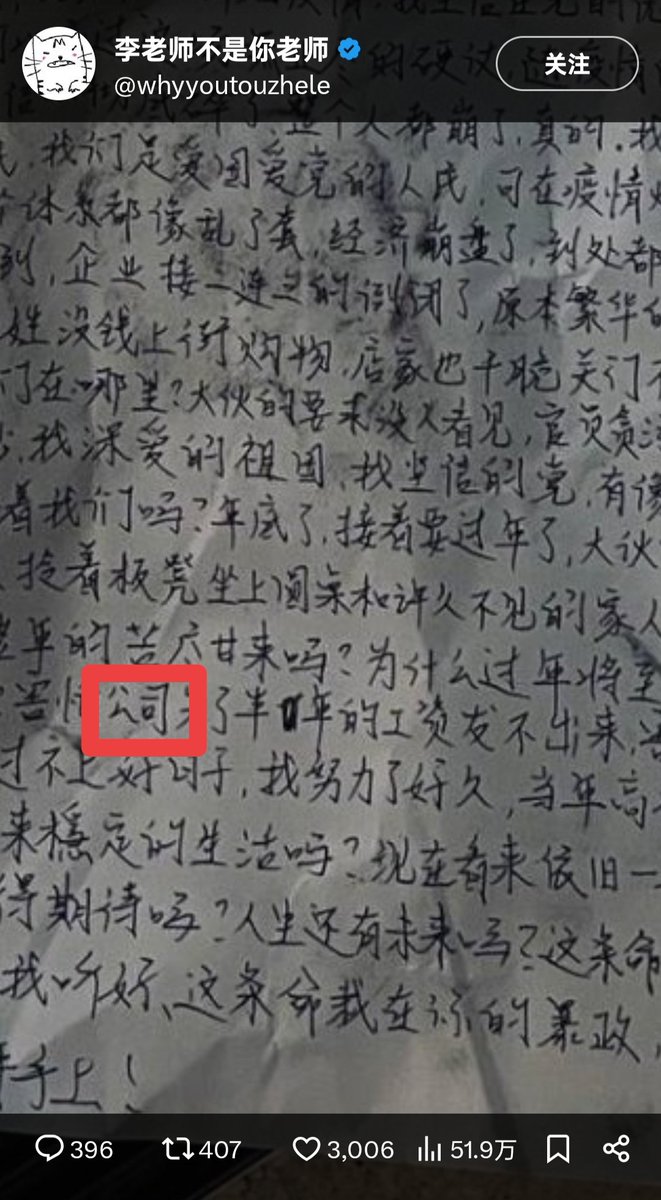 李老师不是你老师
@whyyoutouzhele
关注
的硬议,这疫情
个人都崩了,真的。我
民,我们是爱国爱党的人民,可在疫情
个体系都像乱了套,经济崩盘了,到处都
到,企业接二连三的倒闭了,原本繁华的
姓没钱上街购物,店家也干脆关门不
们在哪里?大伙的要求没人看见,官员贪污
我深爱的祖国,我坚信的党,有像
着我们吗?年底了,接着要过年了,大伙
抢着板凳坐上圆桌和许久不见的家人
年的苦尽甘来吗?为什么过年将至
公司欠了半年的工资发不出来,害
过不上好日子,我努力了好久,当年高
来穩定的生活吗?现在看来依旧一
得期待吗?人生还有未来吗?这条命
我听好、这条命栽在你的暴政,
手上!
396
407
3,006
51.9万